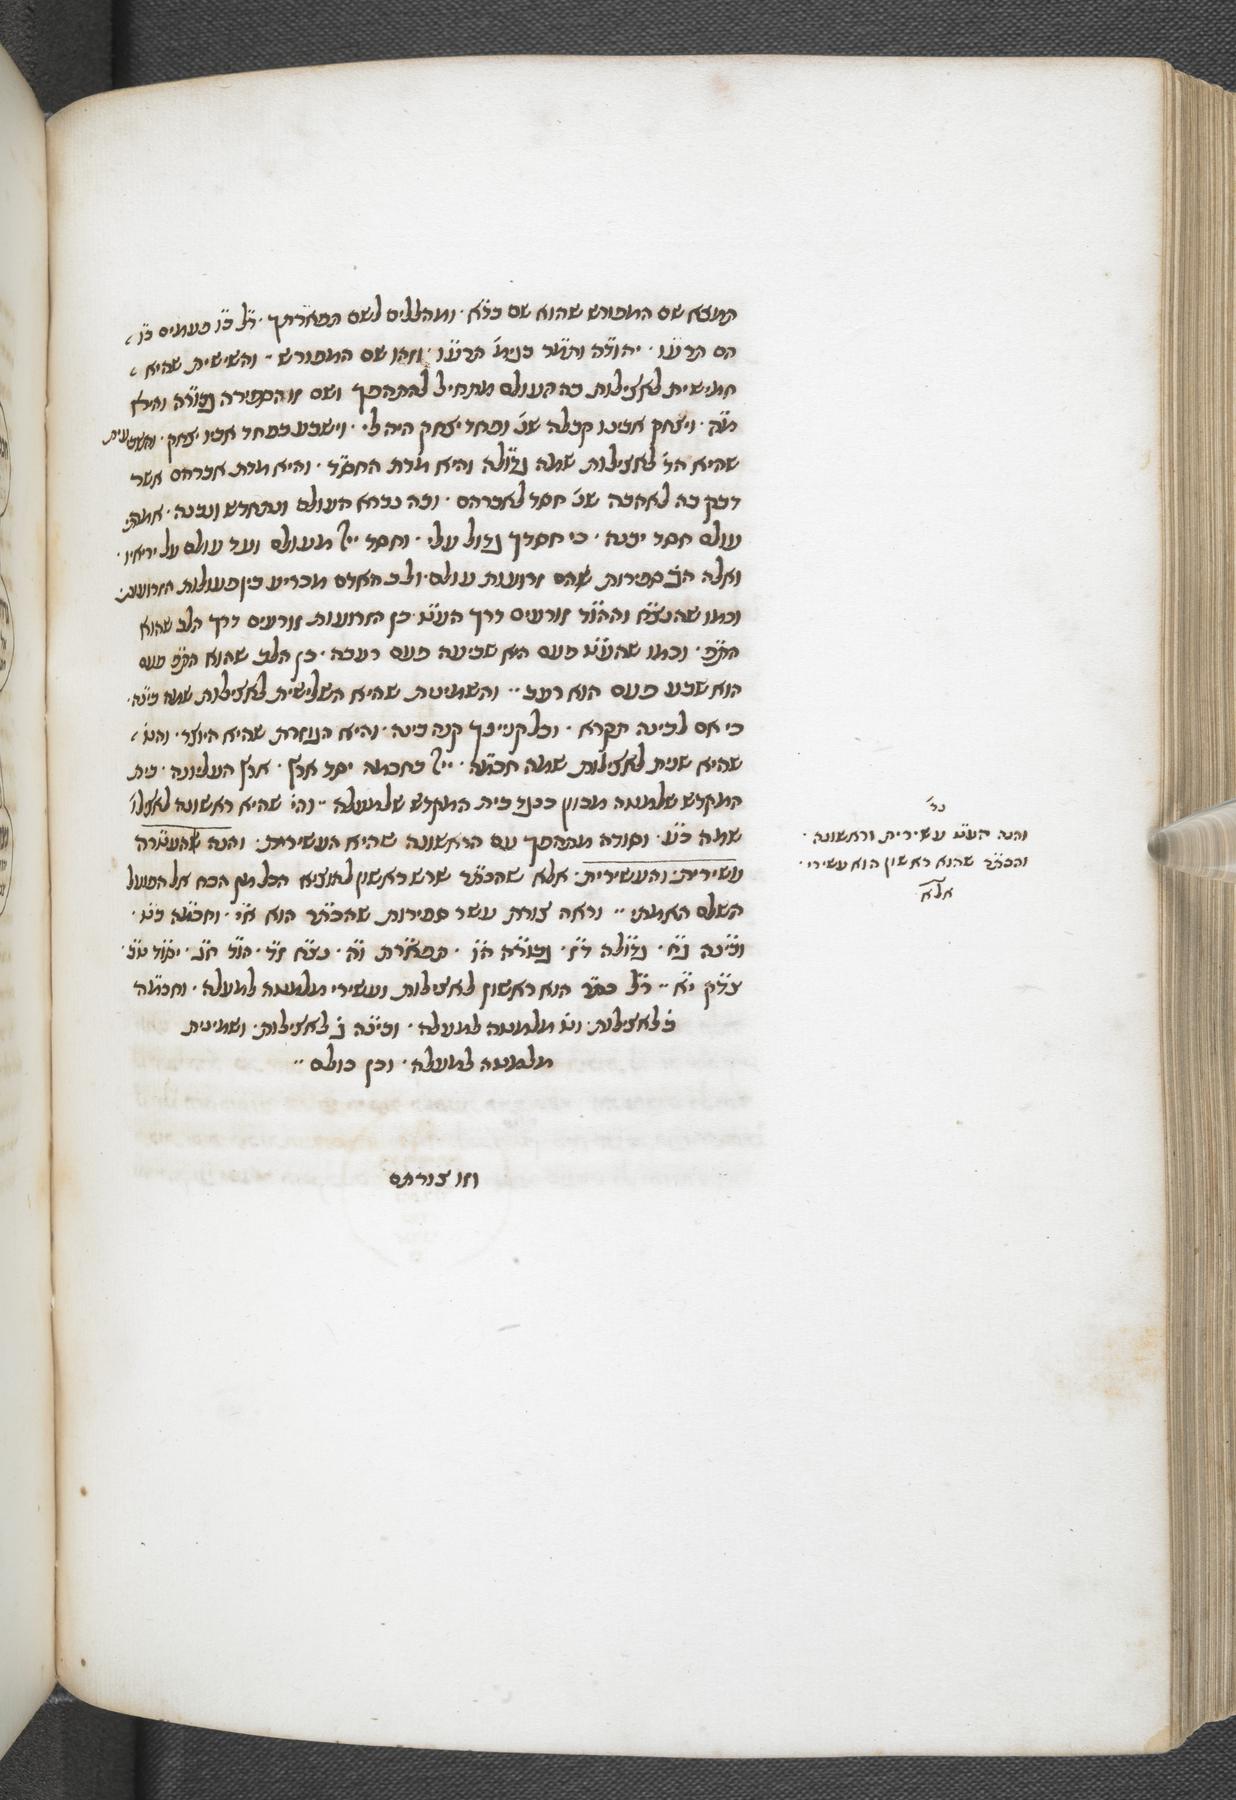 תמצא שם המפורש שהוא שם כ״א · ומהללים לשם תפארתך · ר״ל כ״ו פעמים כ״ו
הם תרע״ו · יהודה ותמר בנימ׳ תרע״ו · וזהו שם המפורש ·· והששית שהיא
חמישית לאצילות בה העולם מתחיל להתהפך ושם זו הספירה גבורה והיא
מ״ה · ויצחק אבינו קבלה שנ׳ ופחד יצחק היה לי · וישבע בפחד אביו יצחק · והשביעית
שהיא הד׳ לאצילות שמה גדולה והיא מדת החסד · והיא מדת אברהם אשר
דבק בה לאהבה שנ׳ חסד לאברהם · ובה נברא העולם ונתחדש ונבנה · אמת׳
עולם חסד יבנה · כי חסדך גדול עלי · וחסד ייי מעולם ועד עולם על יריאיו ·
ואלה הב׳ ספירות שהם זרועות עולם · ולב האדם מכריע בין פעולות הזרועות׃
וכמו שהנצ״ח וההו״ד זורעים דרך הע״ט · כן הזרועות זורעים דרך הלב שהוא
הת״פ · וכמו שהע״ט פעם היא שביעה פעם רעבה · כן הלב שהוא הת״פ פעם
הוא שבע פעם הוא רעב ·· והשמינית שהיא השלישית לאצילות שמה בינה ·
כי אם לבינה תקרא · ובכל קניינך קנה בינה · והיא הנוצרת שהיא היוצר · והט׳
שהיא שנית לאצילות שמה חכמה · ייי בחכמה יסד ארץ · ארץ העליונה · בית
המקדש שלמטה מכוון כנגד בית המקדש שלמעלה ·· והי׳ שהיא ראשונה לאצילו׳
שמה כ״ע · וסודה מתהפך עם הראשונה שהיא העשירית׃ והנה שהעטרה
עשירית׃ והעשירית׃ אלא שהכתר שרש ראשון להוציא הכל מן הכח אל הפועל
השלם האמתי ·· וראה צורת עשר ספירות שהכתר הוא א״י · וחכמה ב״ט ·
ובינה ג״ח · גדולה ד״ז · גבורה ה״ו · תפארת ו״ה · נצח ז״ד · הוד ח״ג · יסוד ט״ב
צדק י״א ·· ר״ל כתר הוא ראשון לאצילות ועשירי מלמטה למעלה · וחכמה
ב׳ לאצילות׃ וט׳ מלמטה למעלה · ובינה ג׳ לאצילות׃ ושמינית
מלמטה למעלה · וכן כולם ··
וזו צורתם
נר׳
והנה הע״ט עשירית וראשונה ·
והכתר שהוא ראשון הוא עשירי ·
אלא